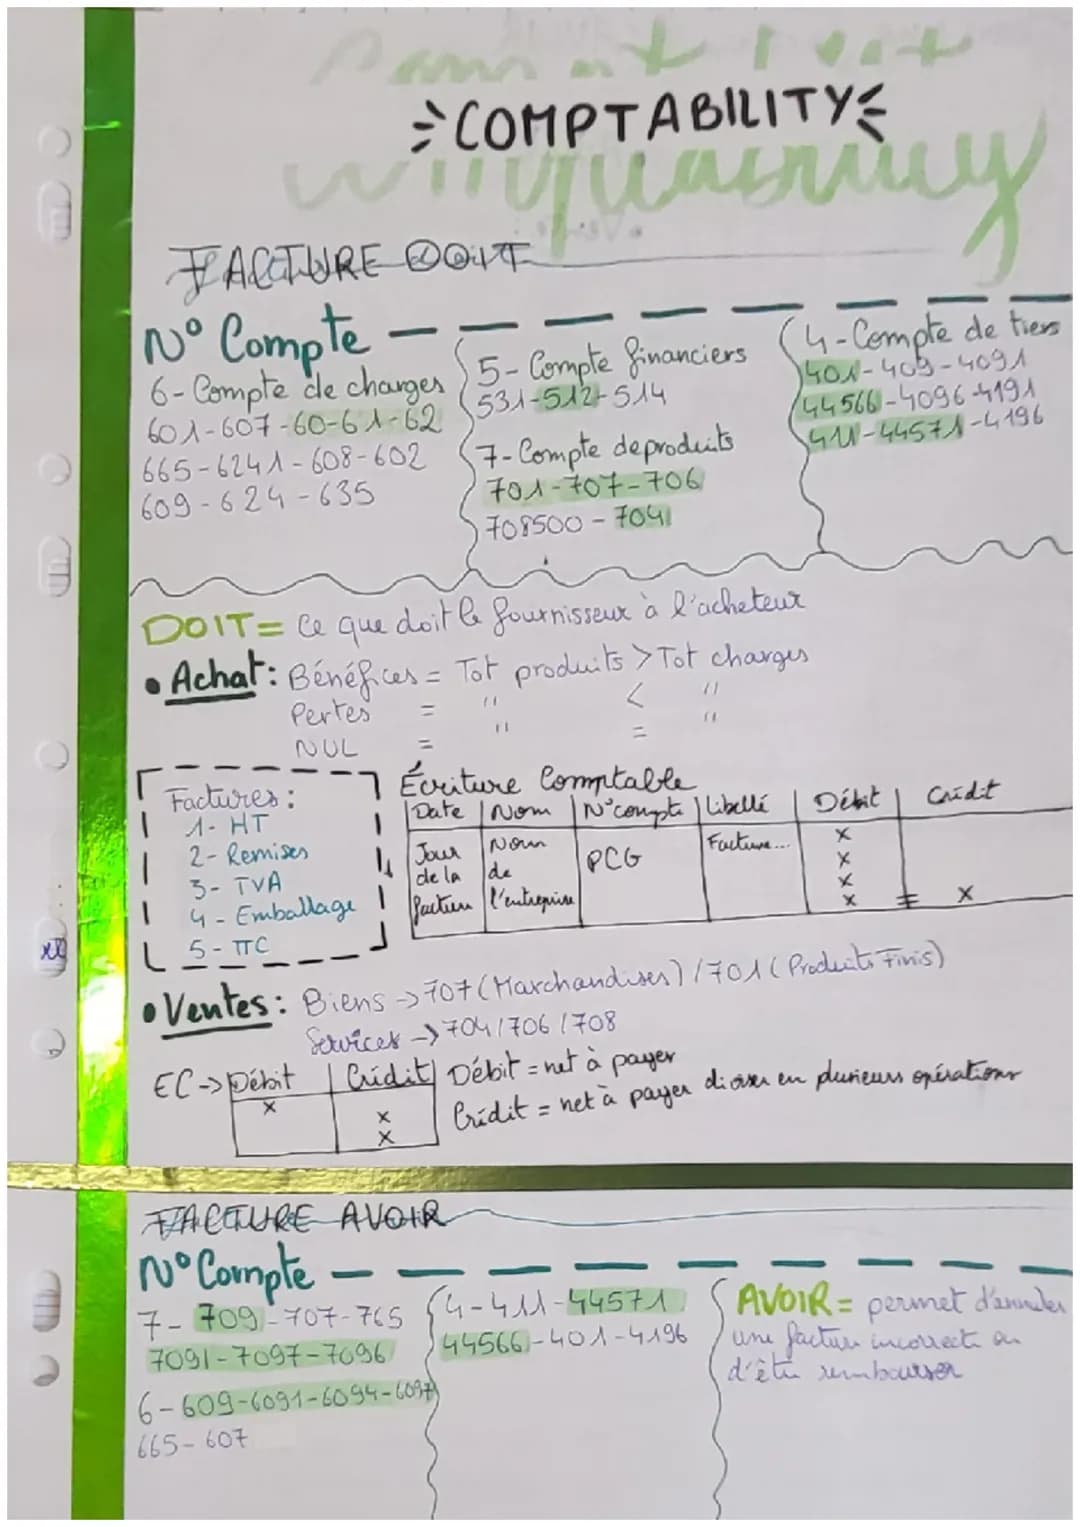 COMPTABILITY
FACTURE DOIT
N° Compte
6-Compte de charges
601-607-60-61-62
665-6241-608-602
609-624-635
5-Compte financiers
531-512-514
7-Compte de produits
701-707-706
708500-7041
4-Compte de tiers
401-409-4091
44566-4096-4191
411-44571-4196
DOIT= Ce que doit le fournisseur à l'acheteur
• Achat: Bénéfices = Tot produits > Tot charges
Pertes = " < "
NUL = " = "
Factures:
1- HT
2- Remises
3- TVA
4- Emballage
5- TTC
Écriture Comptable
Date | Nom | N°compte | Libellé | Débit | Crédit
Jour de la facture | Nom de l'entreprise | PCG | Facture... | x
x
x
x = x
• Ventes: Biens -> 707 (Marchandises) / 701 (Produits Finis)
Services -> 704/706/708
EC-> Débit | Crédit
x
x
x
Débit = net à payer
Crédit = net à payer diviser en plusieurs opérations
FACTURE AVOIR
N° Compte
7- 709-707-765
7091-7097-7096
6-609-6091-6094-6097
665-607
4-411-44571
44566-401-4196
AVOIR= permet d'annuler
une facture incorrecte ou
d'être rembourser